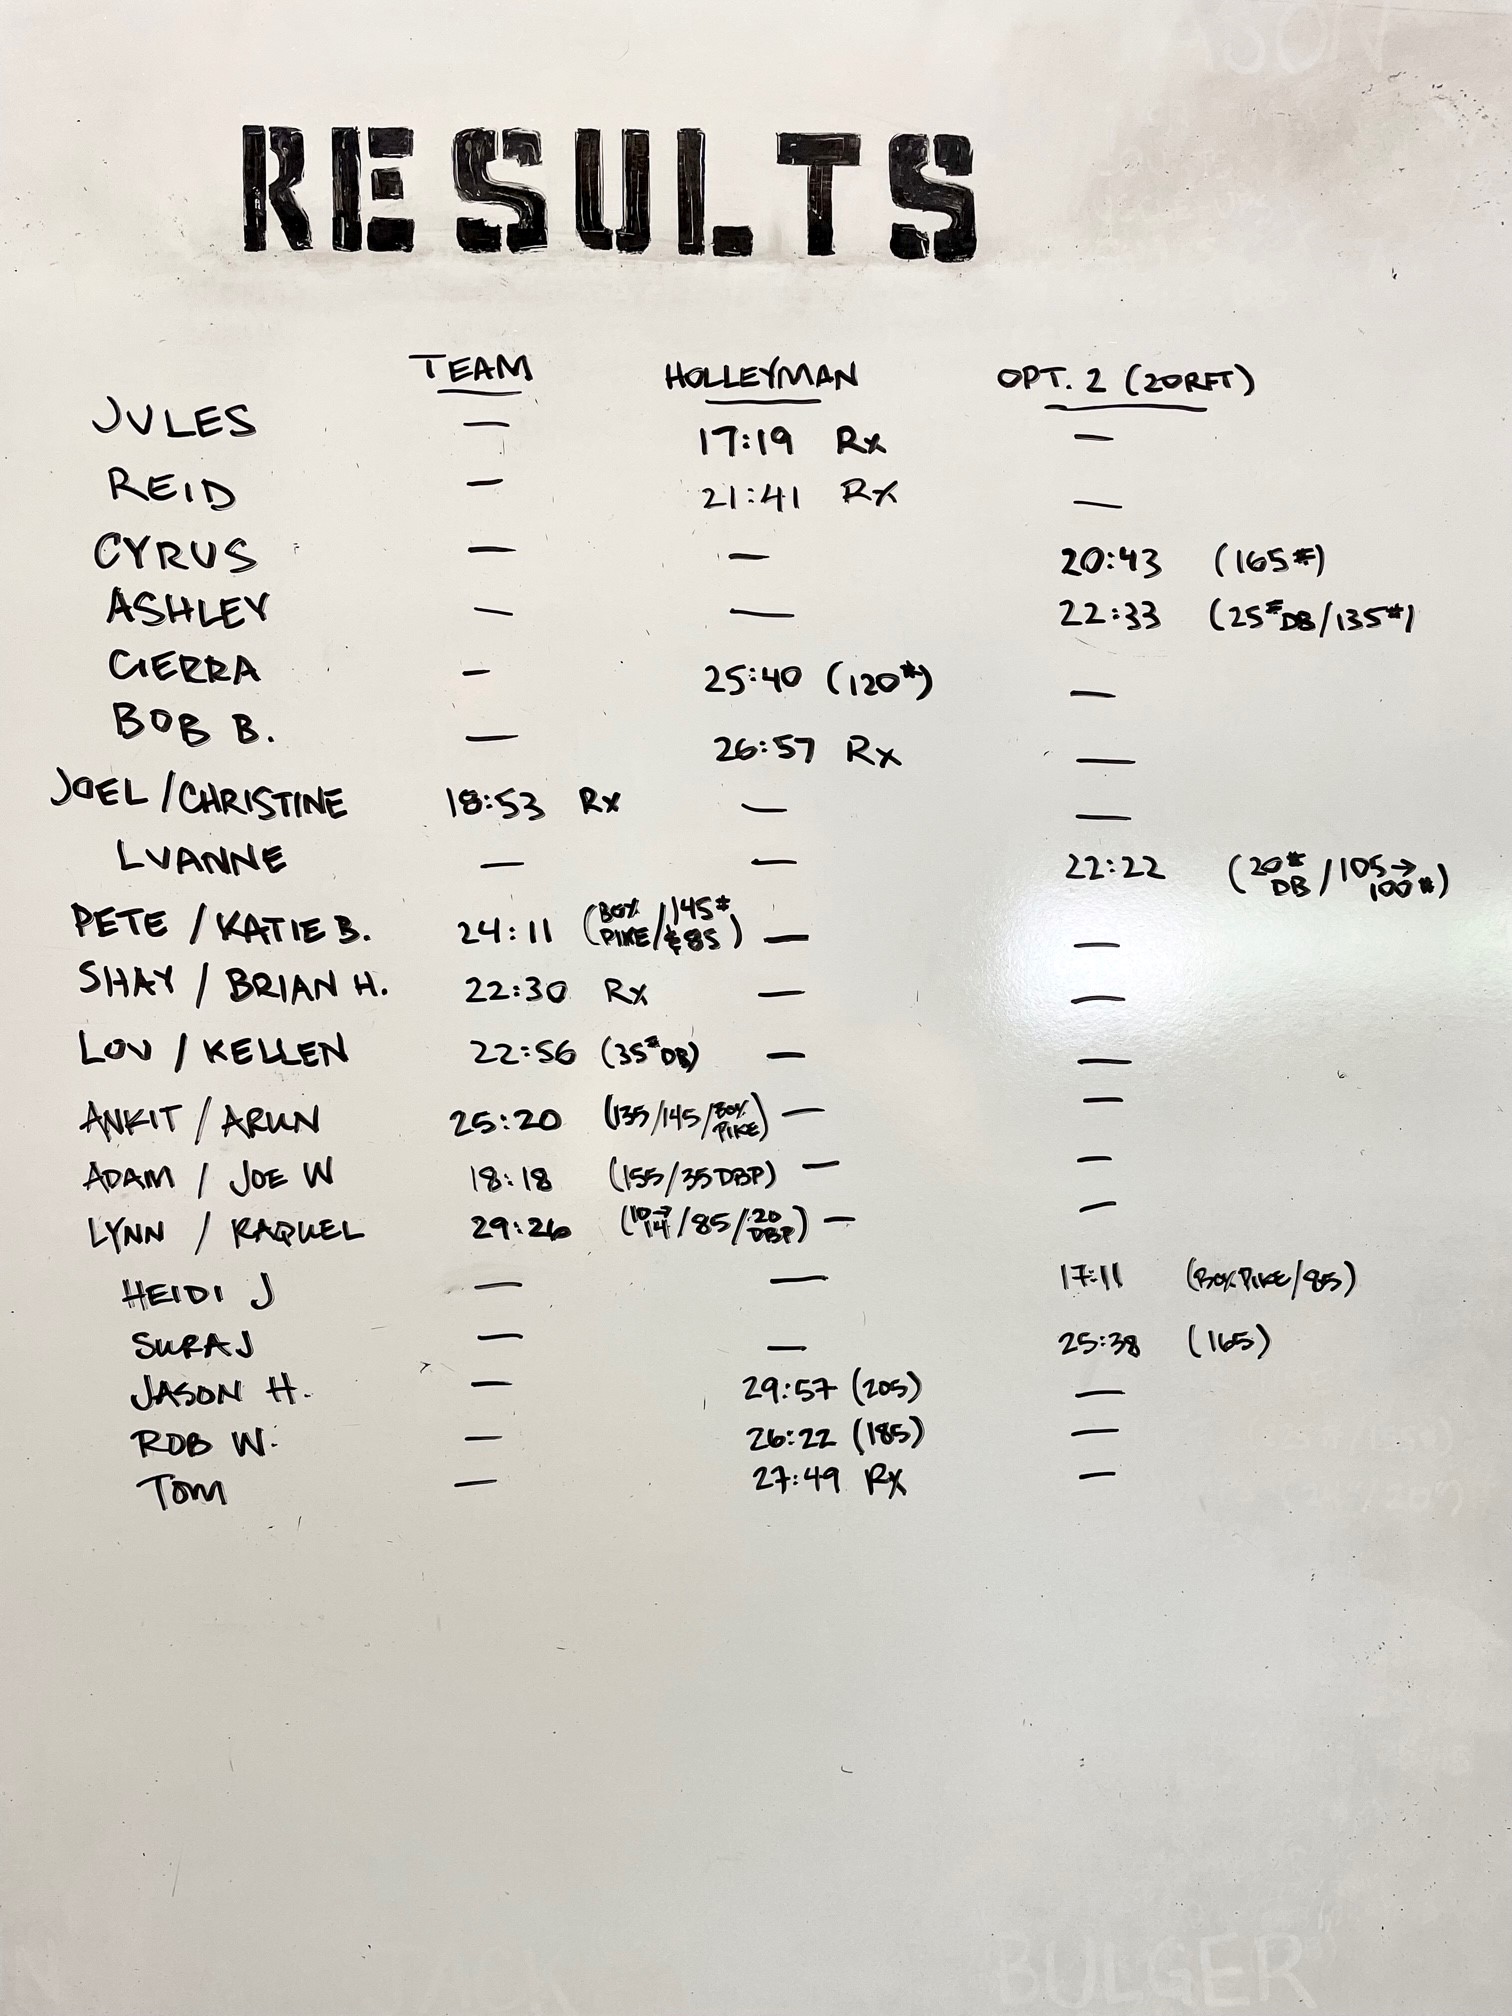 RESULTS
TEAM HOLLEYMAN OPT. 2 (20RFT)
JULES — 17:19 Rx —
REID — 21:41 Rx —
CYRUS — — 20:43 (165#)
ASHLEY — — 22:33 (25# DB/135#)
CIERRA — 25:40 (120#) —
BOB B. — 26:57 Rx —
JOEL/CHRISTINE 18:53 Rx — —
LUANNE — — 22:22 (20# DB/105→100#)
PETE/KATIE B. 24:11 (BOX PIKE/145# & 85) — —
SHAY/BRIAN H. 22:30 Rx — —
LOU/KELLEN 22:56 (35# DB) — —
ANKIT/ARUN 25:20 (135/145/BOX PIKE) — —
ADAM/JOE W 18:18 (155/35 DBP) — —
LYNN/RAQUEL 29:26 (10→14/85/20 DBP) — —
HEIDI J — — 17:11 (BOX PIKE/85)
SURAJ — — 25:38 (165)
JASON H. — 29:57 (205) —
ROB W. — 26:22 (185) —
TOM — 27:49 Rx —
BULGER